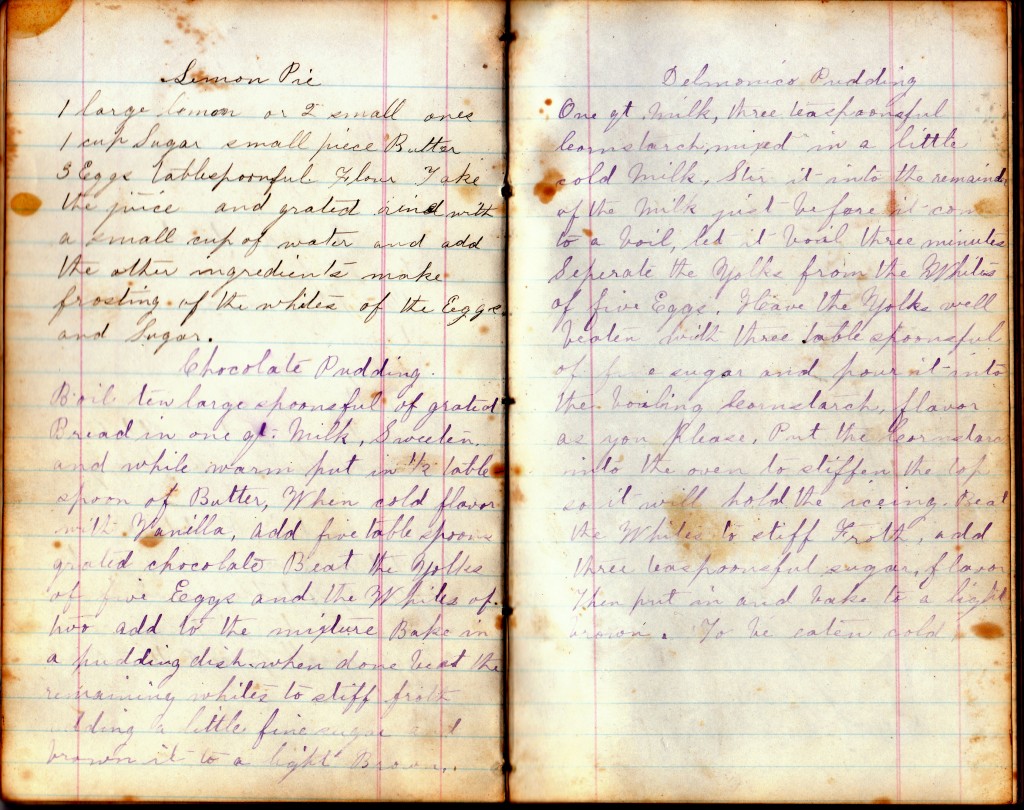 Lemon Pie
1 large lemon or 2 small ones
1 cup Sugar small piece Butter
3 Eggs tablespoonful Flour Take
the juice and grated rind with
a small cup of water and add
the other ingredients make
frosting of the whites of the Eggs
and Sugar.
Chocolate Pudding.
Boil ten large spoonsful of grated
Bread in one qt. Milk, Sweeten.
and while warm put in 1/2 table
spoon of Butter, When cold flavor
with Vanilla, add five table spoons
grated chocolate Beat the Yolks
of five Eggs and the Whites of
two add to the mixture Bake in
a pudding dish when done beat the
remaining whites to stiff froth
adding a little fine sugar and
brown it to a light Brown.
Delmonico Pudding
One qt. Milk, three teaspoonsful
Cornstarch, mixed in a little
cold Milk, Stir it into the remaind
of the Milk just before it com
to a boil, let it boil three minutes
Seperate the Yolks from the Whites
of five Eggs. Have the Yolks well
beaten with three table spoonsful
of sugar and pour it into
the boiling Cornstarch, flavor
as you Please, Put the Cornstarc
into the oven to stiffen the top
so it will hold the iceing. Beat
the Whites to stiff Froth, add
three teaspoonsful sugar, flavor
Then put in and bake to a light
brown. To be eaten cold